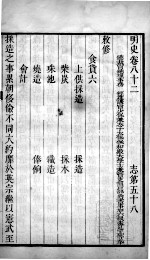 明史卷八十二　志第五十八
敕修
食貨六
上供採造　採造
柴炭　採木
珠池　織造
燒造　俸餉
會計
採造之事累朝侈儉不同大約靡於英宗繼以憲武至